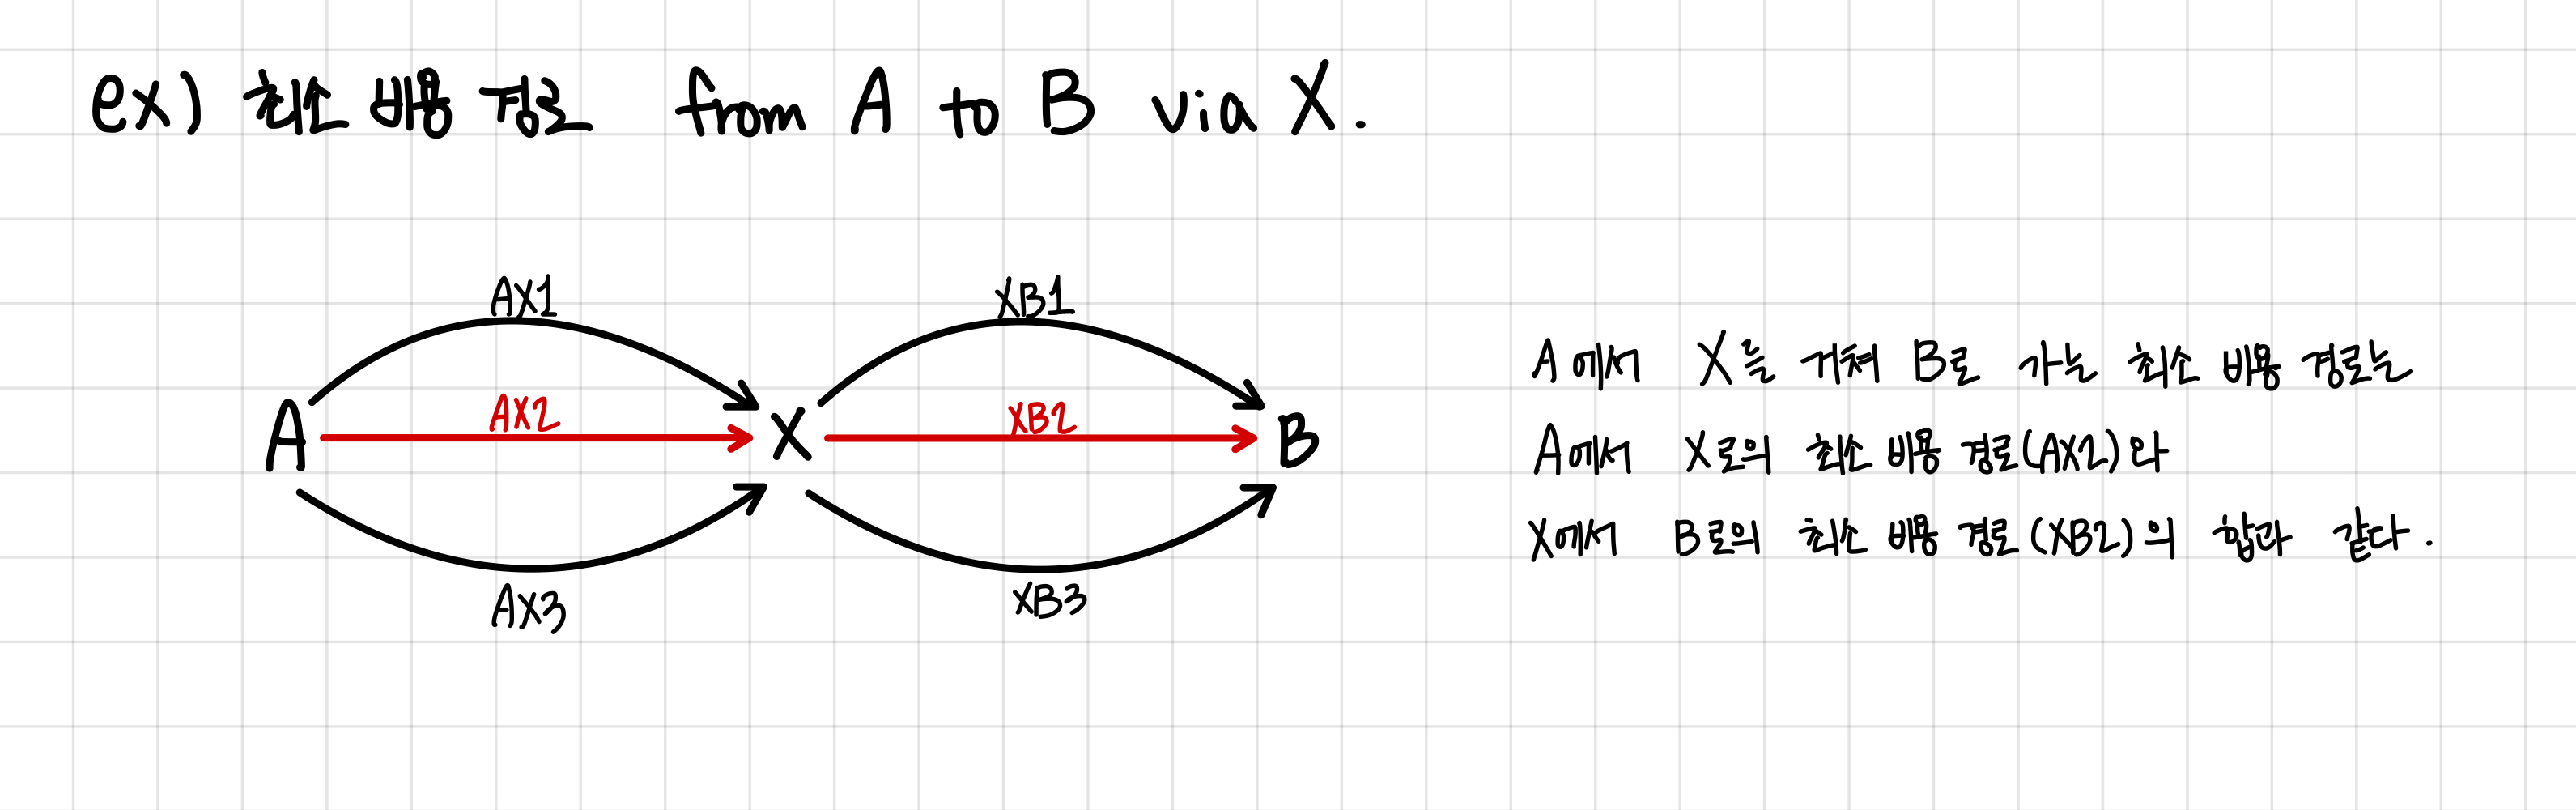 ex) 최소 비용 경로 from A to B via X.
AX1
XB1
A
AX2
X
XB2
B
AX3
XB3
A에서 X를 거쳐 B로 가는 최소 비용 경로는
A에서 X로의 최소 비용 경로(AX2)와
X에서 B로의 최소 비용 경로(XB2)의 합과 같다.